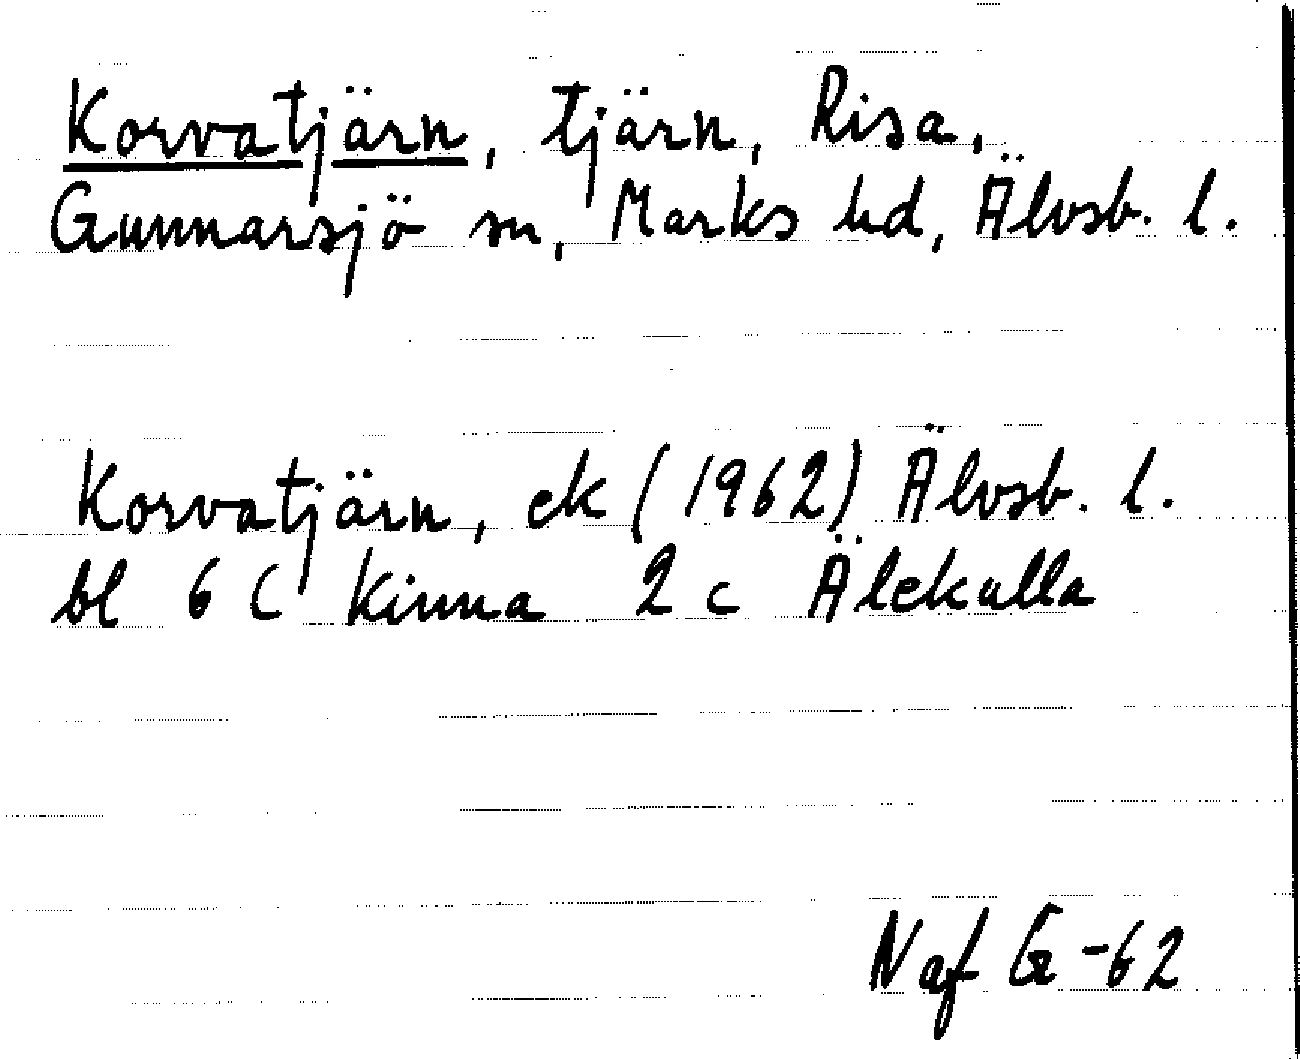 Korvatjärn, tjärn, Risa,
Gunnarsjö sn, Marks hd, Älvsb. l.
Korvatjärn, ek (1962) Älvsb. l.
bl 6 C Kinna 2 c Älekulla
N af G -62